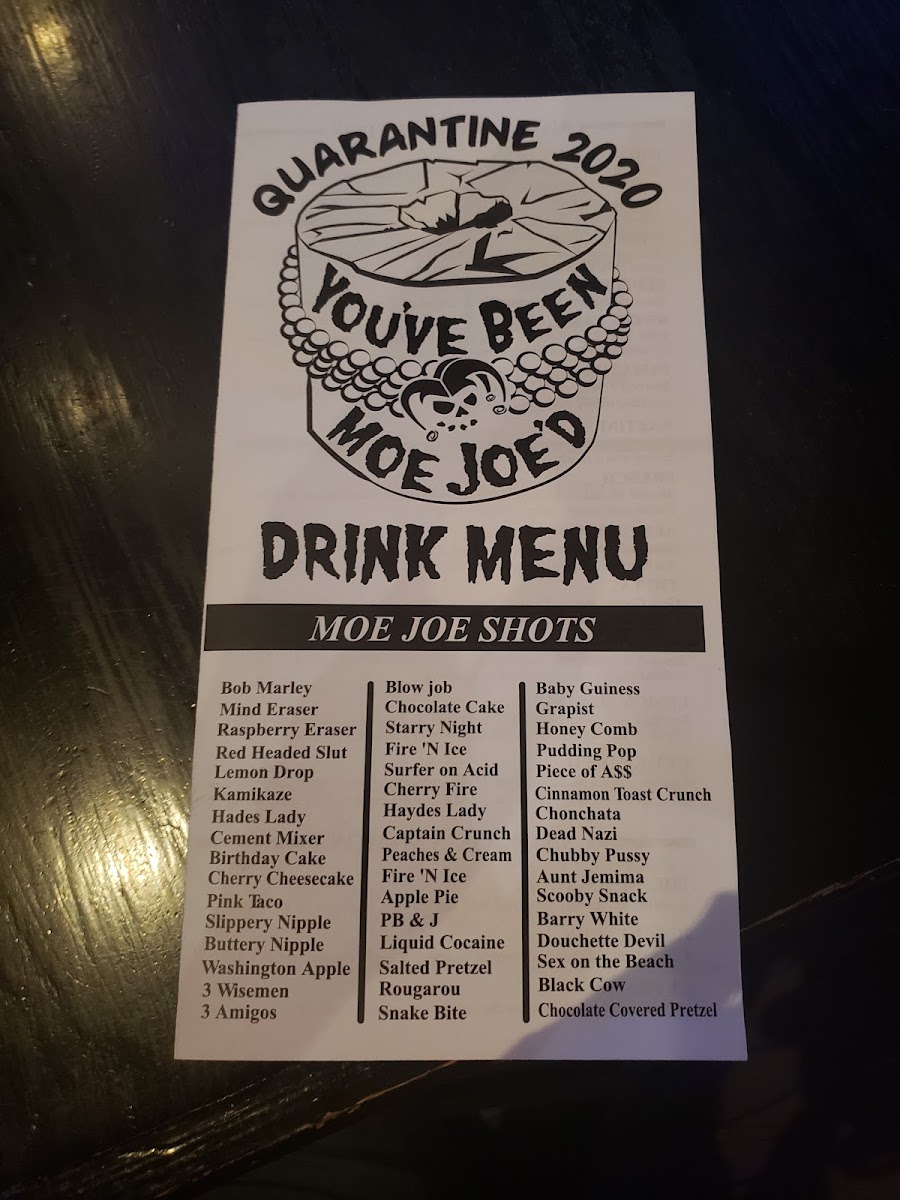 QUARANTINE 2020
YOU'VE BEEN
MOE JOE'D
DRINK MENU
MOE JOE SHOTS
Bob Marley
Mind Eraser
Raspberry Eraser
Red Headed Slut
Lemon Drop
Kamikaze
Hades Lady
Cement Mixer
Birthday Cake
Cherry Cheesecake
Pink Taco
Slippery Nipple
Buttery Nipple
Washington Apple
3 Wisemen
3 Amigos
Blow job
Chocolate Cake
Starry Night
Fire 'N Ice
Surfer on Acid
Cherry Fire
Haydes Lady
Captain Crunch
Peaches & Cream
Fire 'N Ice
Apple Pie
PB & J
Liquid Cocaine
Salted Pretzel
Rougarou
Snake Bite
Baby Guiness
Grapist
Honey Comb
Pudding Pop
Piece of A$$
Cinnamon Toast Crunch
Chonchata
Dead Nazi
Chubby Pussy
Aunt Jemima
Scooby Snack
Barry White
Douchette Devil
Sex on the Beach
Black Cow
Chocolate Covered Pretzel